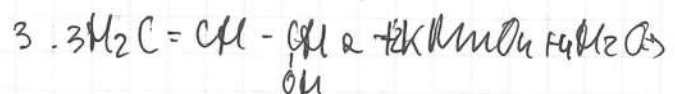 3. 3H2C = CH - CH2 + 2KMnO4 + 4H2O →
OH